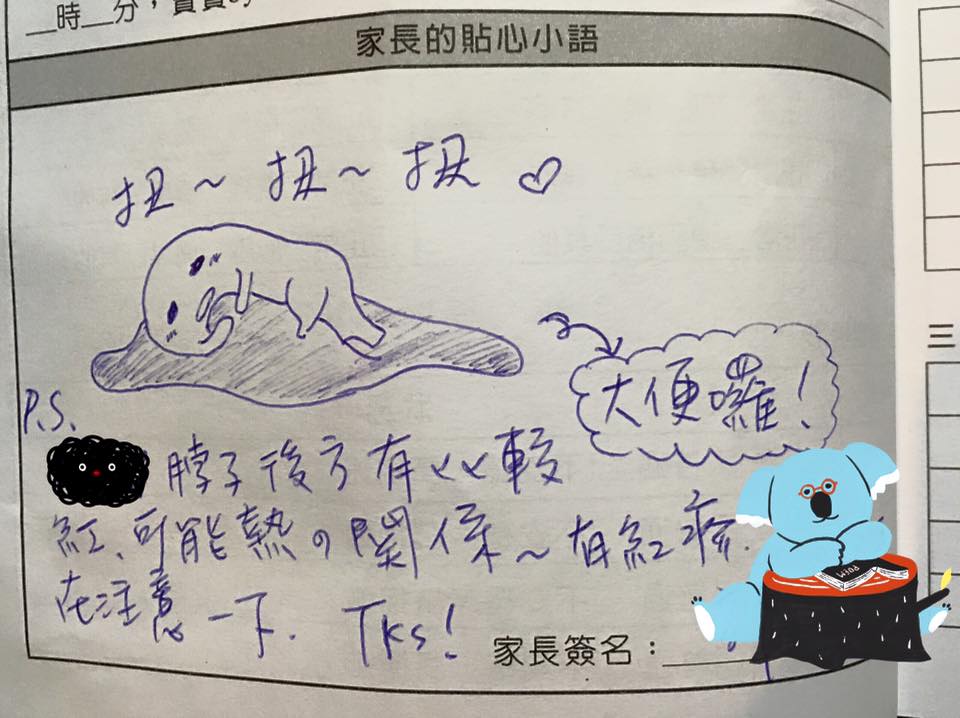 __時__分，寶寶
家長的貼心小語
扭～扭～扭♡
大便囉！
P.S.
脖子後方有比較
紅、可能熱の關係～有紅疹.
在注意一下. Tks!
家長簽名：
三